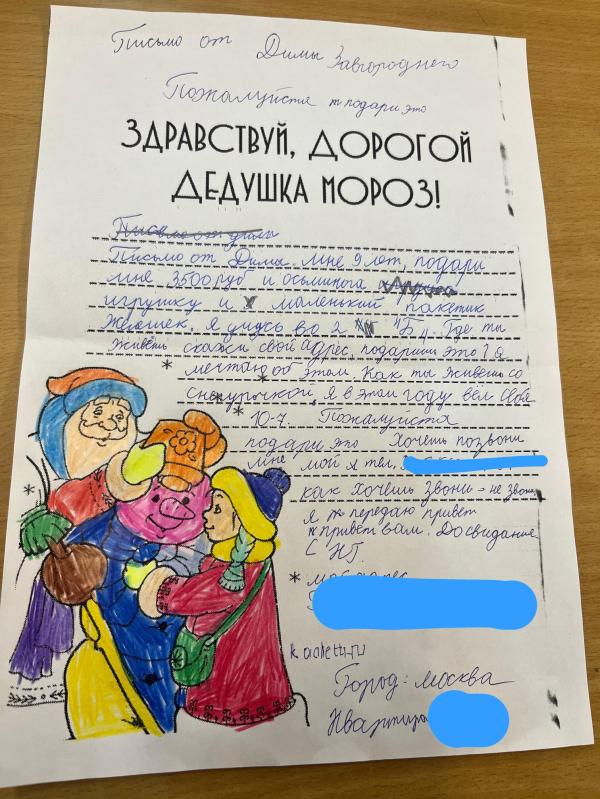 Письмо от Димы Завгороднего
Пожалуйста подари это
ЗДРАВСТВУЙ, ДОРОГОЙ
ДЕДУШКА МОРОЗ!
Письмо от Димы
Письмо от Димы. мне 9 лет, подари
мне 3500 руб и осьминога
игрушку и маленький пакетик
Желешек. Я учусь во 2 "Б". Где ты
живёшь скажи свой адрес, подаришь это? Я
мечтаю об этом. Как ты живёшь со
сныгурочкой, я в этом году вёл себя
10-7. Пожалуйста
подари это Хочешь позвони
мне мой я тел,
как хочешь звони - не звони
я передаю привет
привет вам. Досвидание
С НГ.
мой адрес
Город: москва
Квартира